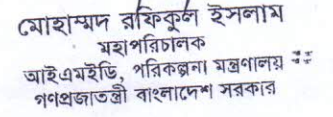 মোহাম্মদ রফিকুল ইসলাম
মহাপরিচালক
আইএমইডি, পরিকল্পনা মন্ত্রণালয়
গণপ্রজাতন্ত্রী বাংলাদেশ সরকার